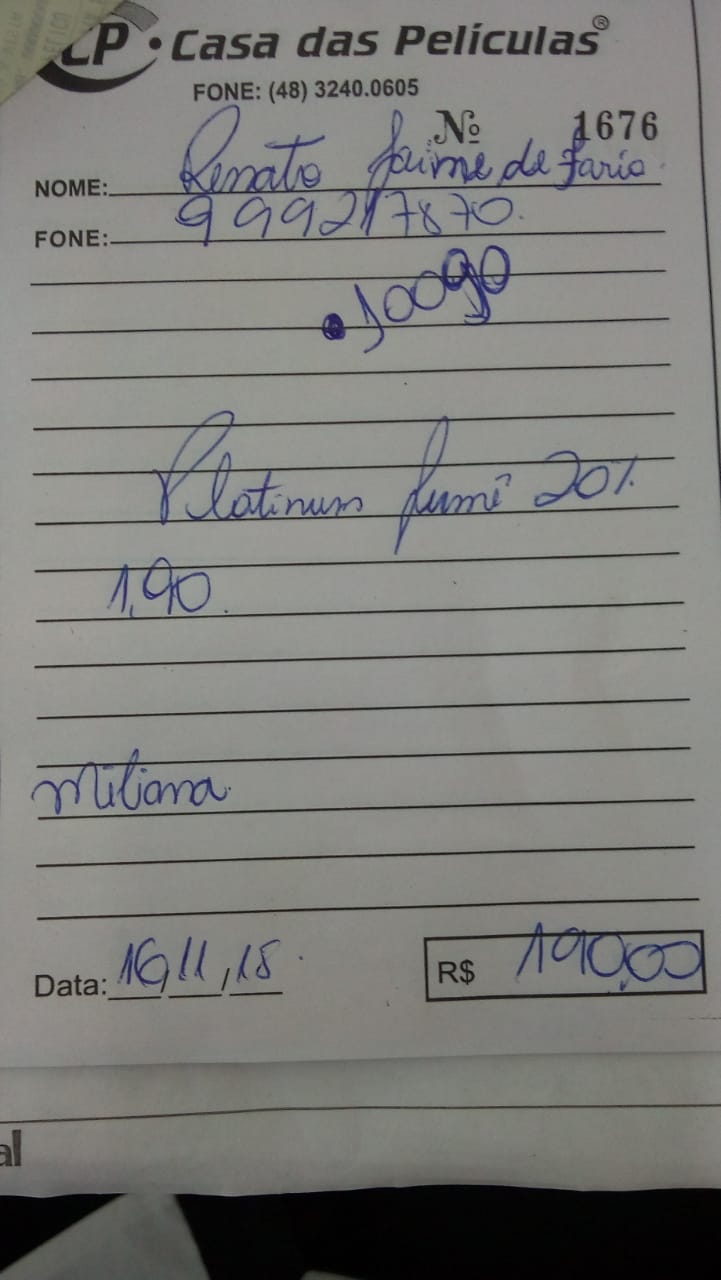 CP • Casa das Películas®
FONE: (48) 3240.0605
Nº 1676
NOME: Renato Jaime de Faria
FONE: 999217870.
Platinum fumê 20%
1,90.
Miliana
Data: 16,11,18
R$ 190,00
al